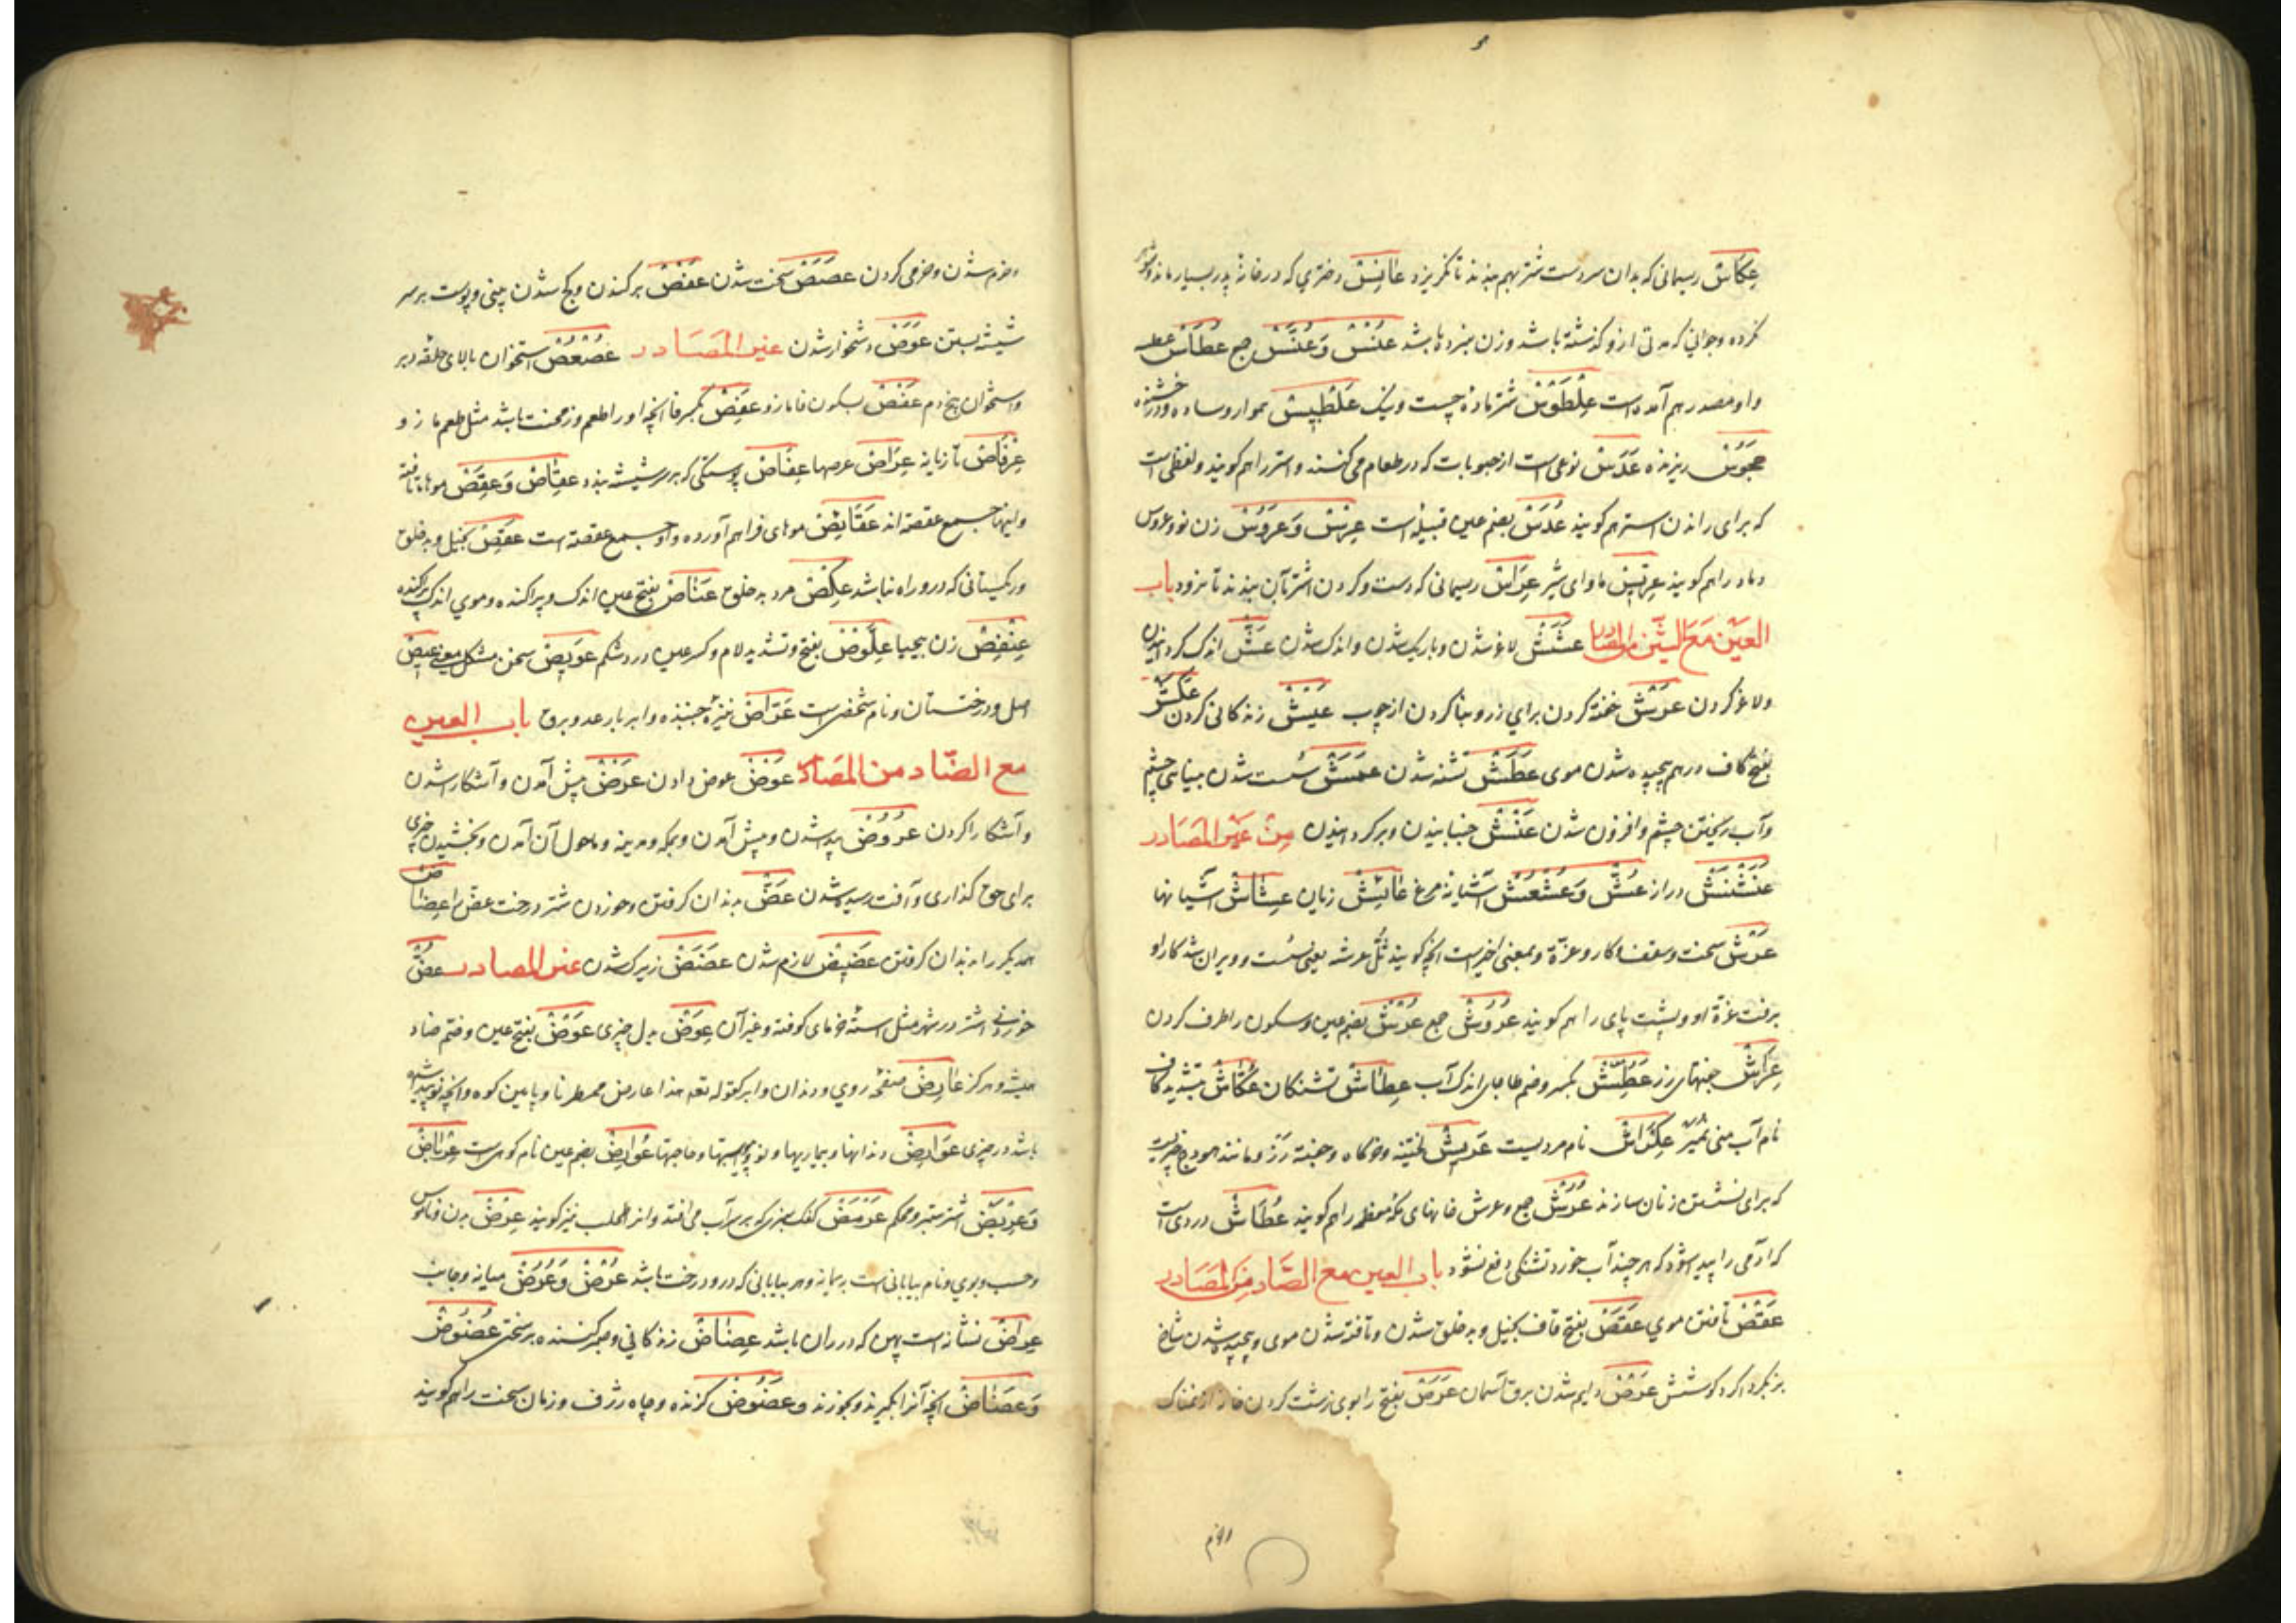 عِکَاسْ ریسمانی که بدان سر دست شتر بهم بندند تا نگریزد عَانِسْ دختری که در خانهٔ پدر بسیار ماند و شوهر
نکرده و جوانی که مدتی ازو گذشته باشد و زن میزده باشد عُنْسْ وَ عُنَّسْ جمع عُطَاسْ عطسه
و او مصدر هم آمده است عِلْطَوْسْ شتر مادهٔ چست و نیک عَلْطَبِیسْ هموار و ساده و درخشنده
عَجُوسْ ریزنده عَدَسْ نوعی است از حبوبات که در طعام می کنند و استر را هم گویند و لفظی است
که برای راندن استر هم گویند عُدَسْ بضم عین قبیله است عِرْسْ وَ عَرُوسْ زن نو و عروس
داماد را هم گویند عِرِّیسْ ماوای شیر عِرَاسْ ریسمانی که دست و گردن اشتر بآن بندند تا نرود باب
العین مَعَ الشّین من المصادر عَشَشْ لاغر شدن و باریک شدن و اندک شدن عَشّ اندک گردانیدن
و لاغر کردن عَرْشْ خفته کردن برای رز و بنا کردن از چوب عَیْشْ زندگانی کردن عَکَشْ
بفتح کاف درهم پیچیده شدن موی عَطَشْ تشنه شدن عَمَشْ سست شدن بینایی چشم
و آب ریختن چشم و افزون شدن عَنْشْ جنبانیدن و برگردانیدن مِنْ غَیْر المَصَادر
عَنَشْنَشْ دراز عُشّ وَ عَشْعَشْ آشیانهٔ مرغ عَائِشْ زیان عِشَاشْ آشیانها
عَرْشْ سخت و سقف و کار و عزّة و بمعنی اخیر است آنچه گویند ثُلَّ عرشه یعنی سست و ویران شد کار او
برفت عزّة او و پشت پای را هم گویند عُرُوشْ جمع عُرْشْ بضم عین و سکون را طرف گردن
عِرَاشْ جفتهای رز عَطِشْ بکسر و ضم طا جای اندک آب عِطَاشْ تشنگان عُکَّاشْ بتشدید کاف
نام آب منی نُمَیْر عِکْرَاشْ نام مردیست عَرِیشْ خفته و خرگاه و جفتهٔ رز و مانند هودج چیزیست
که برای نشستن زنان سازند عُرُشْ جمع و عرش خانهای مکهٔ معظمه را هم گویند عُطَاشْ دردی است
که آدمی را پیدا شود که هر چند آب خورد تشنگی دفع نشود باب العین مع الصّاد مِن المَصَادر
عَقْصْ تافتن موی عَقَصْ بفتح قاف بخیل و بدخلق شدن و تافته شدن موی و پیچیده شدن شاخ
بز بگرداگرد گوشش عَرْصْ دایم شدن برق آسمان عَرَصْ بفتح را بوی زشت کردن خانه از نمناکی
و خرم شدن و خرمی کردن عَصَصْ سخت شدن عَفْصْ برکندن و کج شدن بینی و پوست بر سر
شیشه بستن عَوَصْ دشخوار شدن غیر المَصَادر عُصْعُصْ استخوان بالای حلقهٔ دبر
و استخوان بیخ دم عَفْصْ بسکون فا مازو عَفِصْ بکسر فا آنچه او را طعم و زمخت باشد مثل طعم مازو
عِرْفَاصْ تازیانه عِرَاصْ عرصها عِفَاصْ پوستکی که بر سر شیشه بندند عِقَاصْ وَ عِقَصْ موهای تافته
و اینها جمع عقصه اند عَقَائِصْ موهای فراهم آورده و او جمع عقصه است عَقِصْ بخیل و بدخلق
و ریکستانی که درو راه نباشد عَکِصْ مرد بدخلق عَنَاصْ بفتح عین اندک و پراکنده و موی اندک پراکنده
عِنْفِصْ زن بیحیا عِلَّوْصْ بفتح و تشدید لام و کسر عین درد شکم عَوِیصْ سخن مشکل معنی عِیصْ
اصل و درختستان و نام شخصی است عَرَّاصْ نیزهٔ جنبنده و ابر با رعد و برق باب العین
مع الضّاد من المَصَادر عَوْضْ عوض دادن عَرْضْ پیش آمدن و آشکار شدن
و آشکارا کردن عُرُوضْ پدید شدن و پیش آمدن و بمکه و مدینه و ماحول آن آمدن و بخشیدن چیزی
برای حق گذاری و آفت رسیده شدن عَضّ بدندان گرفتن و خوردن شتر درخت عضّ را عِضَاضْ
همدیگر را بدندان گرفتن عَضِیضْ لازم شدن عَضَضْ زیرک شدن غیر المصادر عُضّ
خوردنی اشتر در شهر مثل استهٔ خرمای کوفته و غیر آن عِوَضْ بدل چیزی عَوْضُ بفتح عین و ضم ضاد
همیشه و هرگز عَارِضْ صفحهٔ روی و دندان و ابر کقوله تعه هذا عارض ممطرنا و پایین کوه و آنچه نو پیدا شده
باشد در چیزی عَوَارِضْ دندانها و بیماریها و نو و حاجتها عُوَارِضْ بضم عین نام کوهی است عِرْبَاضْ
وَ عِرَبْضْ اشتر ستبر و محکم عَرْمَضْ کفک سبزی که بر سر آب می افتد و آنرا طحلب نیز گویند عِرْضْ بدن و ناموس
و حسب و بوی و نام بیابانی است بیمانه و هر بیابانی که درو درخت باشد عُرْضْ وَ عُرُضْ میانه و جانب
عِرَاضْ نشانه است پهن که در ران باشد عِضَاضْ زندگانی و صبر کننده بر سختی عُضُوضْ
وَ عَضَاضْ آنچه آنرا بگیرند و بخورند و عَضُوضْ گزنده و چاه ژرف و زمان سخت را هم گویند